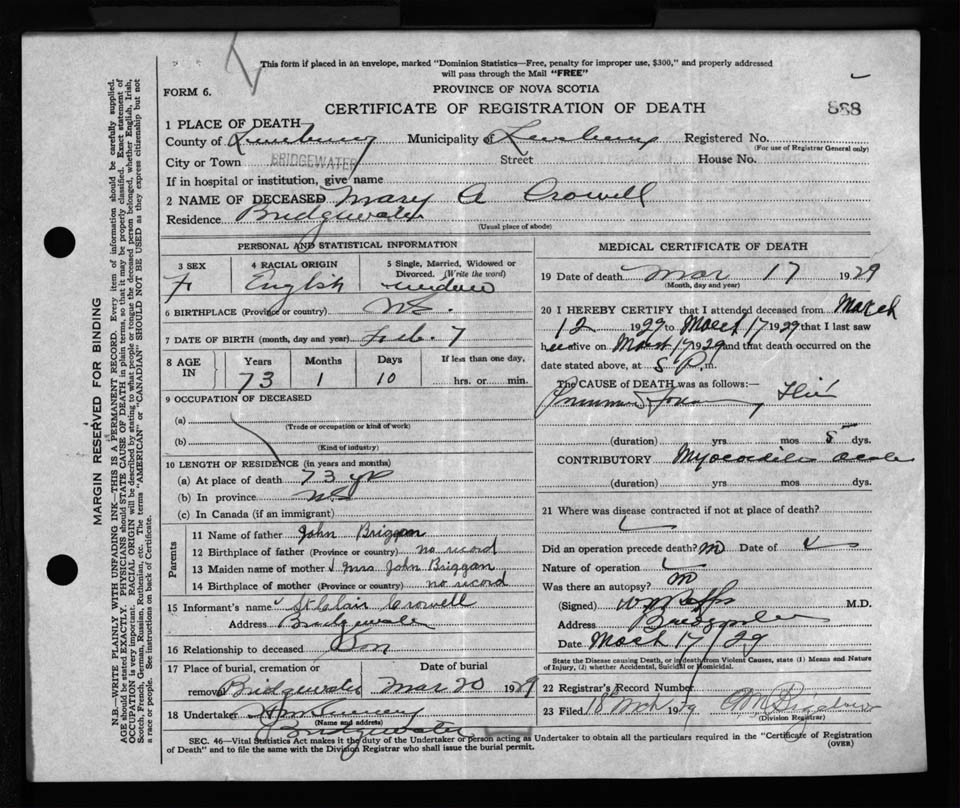 This form if placed in an envelope, marked "Dominion Statistics—Free, penalty for improper use, $300," and properly addressed
will pass through the Mail "FREE"
FORM 6.
PROVINCE OF NOVA SCOTIA
CERTIFICATE OF REGISTRATION OF DEATH
888
1 PLACE OF DEATH
County of Lunenburg Municipality of Lunenburg Registered No.
(For use of Registrar General only)
City or Town BRIDGEWATER Street House No.
If in hospital or institution, give name
2 NAME OF DECEASED Mary A Crowell
Residence Bridgewater
(Usual place of abode)
PERSONAL AND STATISTICAL INFORMATION
3 SEX
F
4 RACIAL ORIGIN
English
5 Single, Married, Widowed or Divorced. (Write the word)
widow
6 BIRTHPLACE (Province or country) N.S.
7 DATE OF BIRTH (month, day and year) Feb. 7
8 AGE IN
Years Months Days If less than one day,
73 1 10 hrs. or min.
9 OCCUPATION OF DECEASED
(a)
(Trade or occupation or kind of work)
(b)
(Kind of industry)
10 LENGTH OF RESIDENCE (in years and months)
(a) At place of death 73 yr
(b) In province N.S
(c) In Canada (if an immigrant)
Parents
11 Name of father John Briggan
12 Birthplace of father (Province or country) no record
13 Maiden name of mother Mrs John Briggan
14 Birthplace of mother (Province or country) no record
15 Informant's name St Clair Crowell
Address Bridgewater
16 Relationship to deceased Son
17 Place of burial, cremation or Date of burial
removal Bridgewater Mar 20 1929
18 Undertaker
(Name and address)
Bridgewater
MEDICAL CERTIFICATE OF DEATH
19 Date of death Mar 17 1929
(Month, day and year)
20 I HEREBY CERTIFY that I attended deceased from March
12 1929 to March 17 1929 that I last saw
her alive on March 17 1929 and that death occurred on
date stated above, at 5 P.m.
The CAUSE of DEATH was as follows:—
(duration) yrs mos 5 dys.
CONTRIBUTORY
(duration) yrs. mos dys.
21 Where was disease contracted if not at place of death?
Did an operation precede death? no Date of
Nature of operation
Was there an autopsy? no
(Signed) M.D.
Address Bridgewater
Date March 17/29
State the Disease causing Death, or in death from Violent Causes, state (1) Means and Nature
of Injury, (2) whether Accidental, Suicidal or Homicidal.
22 Registrar's Record Number
23 Filed 18 Mch 1929
(Division Registrar)
SEC. 46—Vital Statistics Act makes it the duty of the Undertaker or person acting as Undertaker to obtain all the particulars required in the "Certificate of Registration
of Death" and to file the same with the Division Registrar who shall issue the burial permit.
(OVER)
MARGIN RESERVED FOR BINDING
N.B.—WRITE PLAINLY WITH UNFADING INK—THIS IS A PERMANENT RECORD. Every item of information should be carefully supplied.
AGE should be stated EXACTLY. PHYSICIANS should STATE CAUSE OF DEATH in plain terms, so that it may be properly classified. Exact statement of
OCCUPATION is very important. RACIAL ORIGIN will be described by stating to what people or tongue the deceased person belonged, whether English, Irish,
Scotch, French, German, Russian, Ruthenian, etc. The terms "AMERICAN" or "CANADIAN" SHOULD NOT BE USED as they express citizenship but not
a race or people. See instructions on back of Certificate.